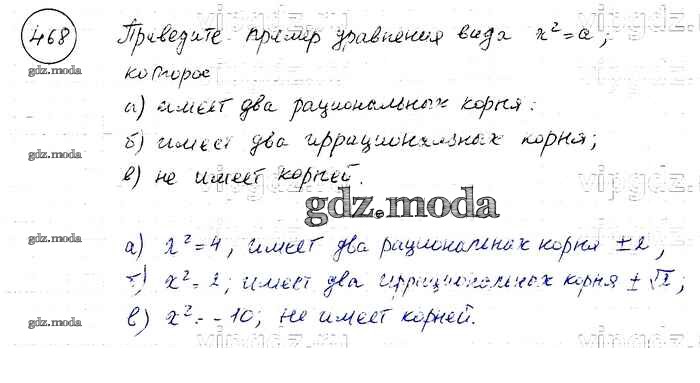 468 Приведите пример уравнения вида x²=a,
которое
а) имеет два рациональных корня:
б) имеет два иррациональных корня;
в) не имеет корней.
gdz.moda
а) x²=4, имеет два рациональных корня ±2,
б) x²=2; имеет два иррациональных корня ±√2;
в) x²=-10; не имеет корней.
gdz.moda
gdz.moda
gdz.moda
gdz.moda
vipgdz.ru
vipgdz.ru